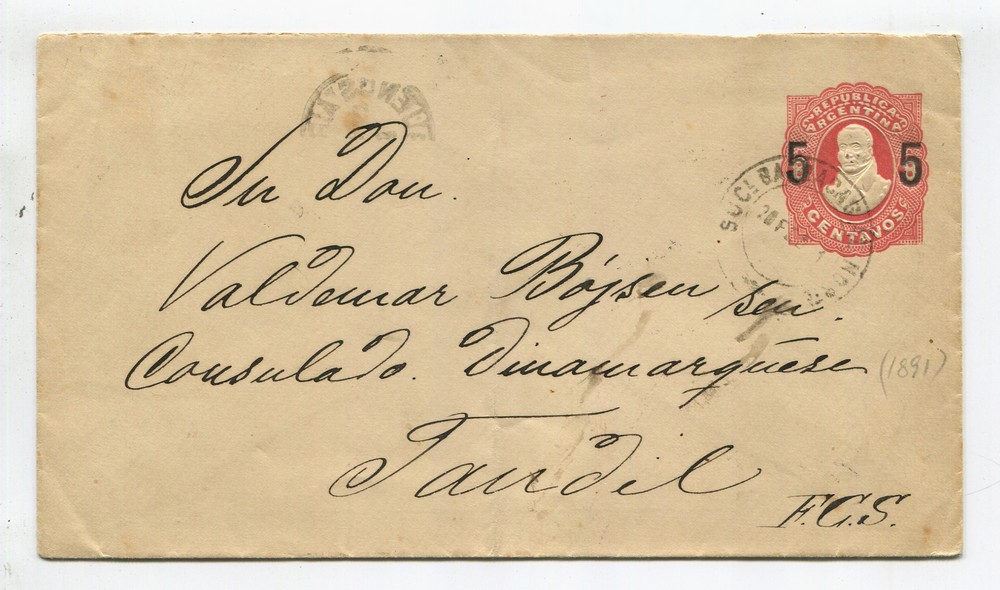 REPUBLICA
ARGENTINA
5 5
CENTAVOS
SUCL BARRACAS NORTE
Sr Don.
Valdemar Böjsen sen.
Consulado. Dinamarquese
(1891)
Tandil
F.C.S.